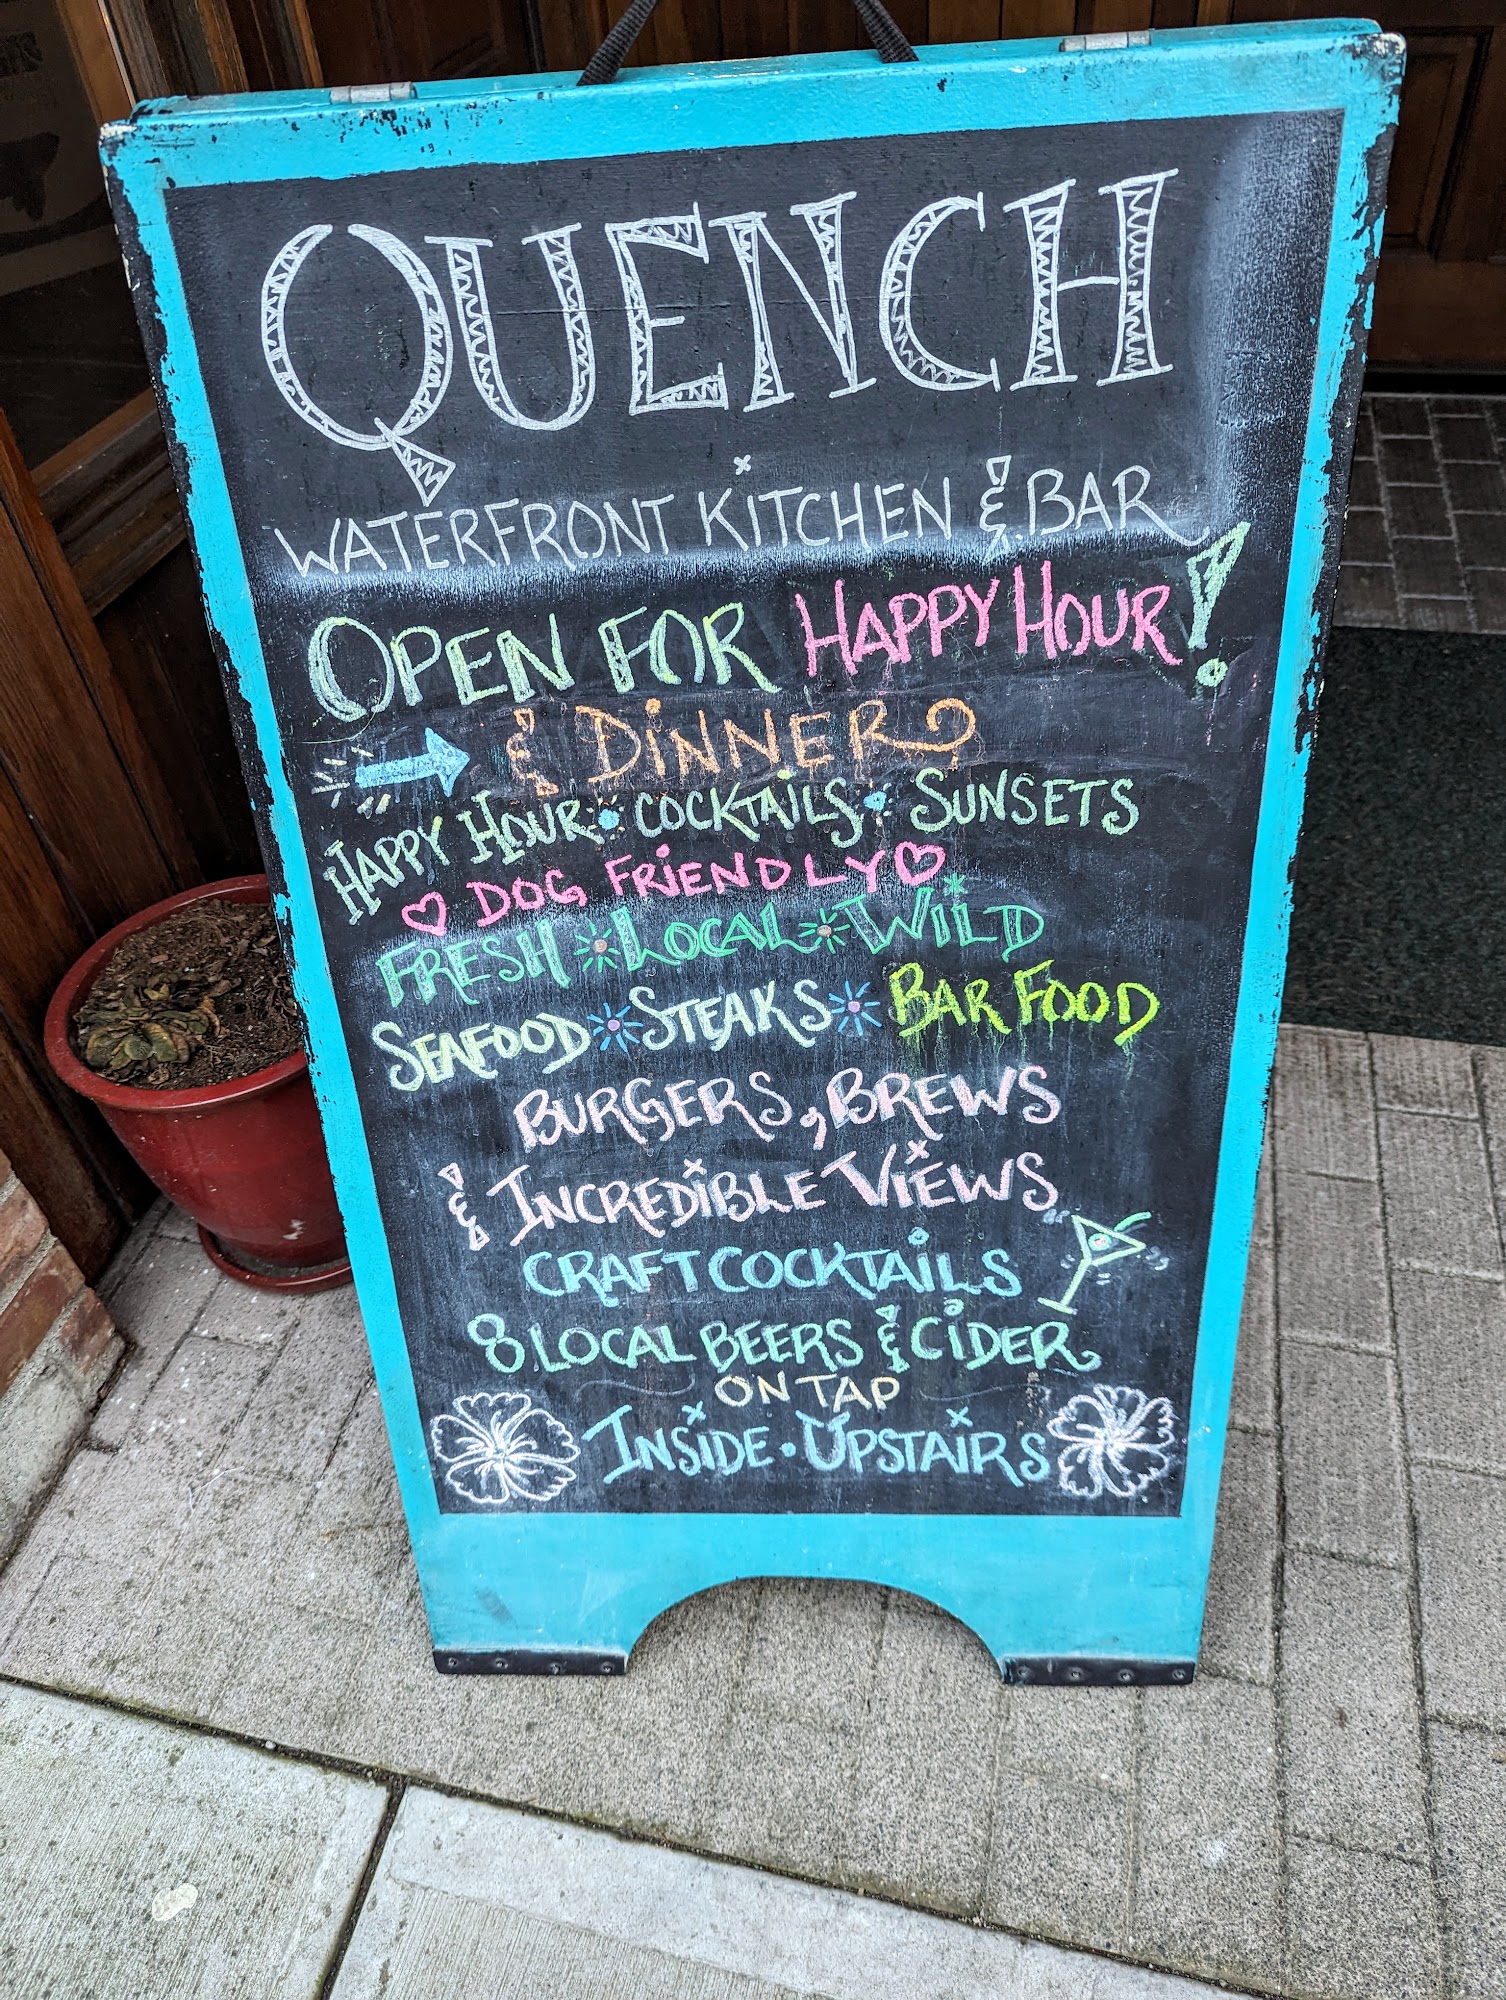 QUENCH
WATERFRONT KITCHEN & BAR
OPEN FOR HAPPY HOUR!
& DINNER
HAPPY HOUR • COCKTAILS • SUNSETS
♡ DOG FRIENDLY ♡
FRESH • LOCAL • WILD
SEAFOOD • STEAKS • BAR FOOD
BURGERS, BREWS
& INCREDIBLE VIEWS
CRAFT COCKTAILS
8 LOCAL BEERS & CIDER
ON TAP
INSIDE • UPSTAIRS